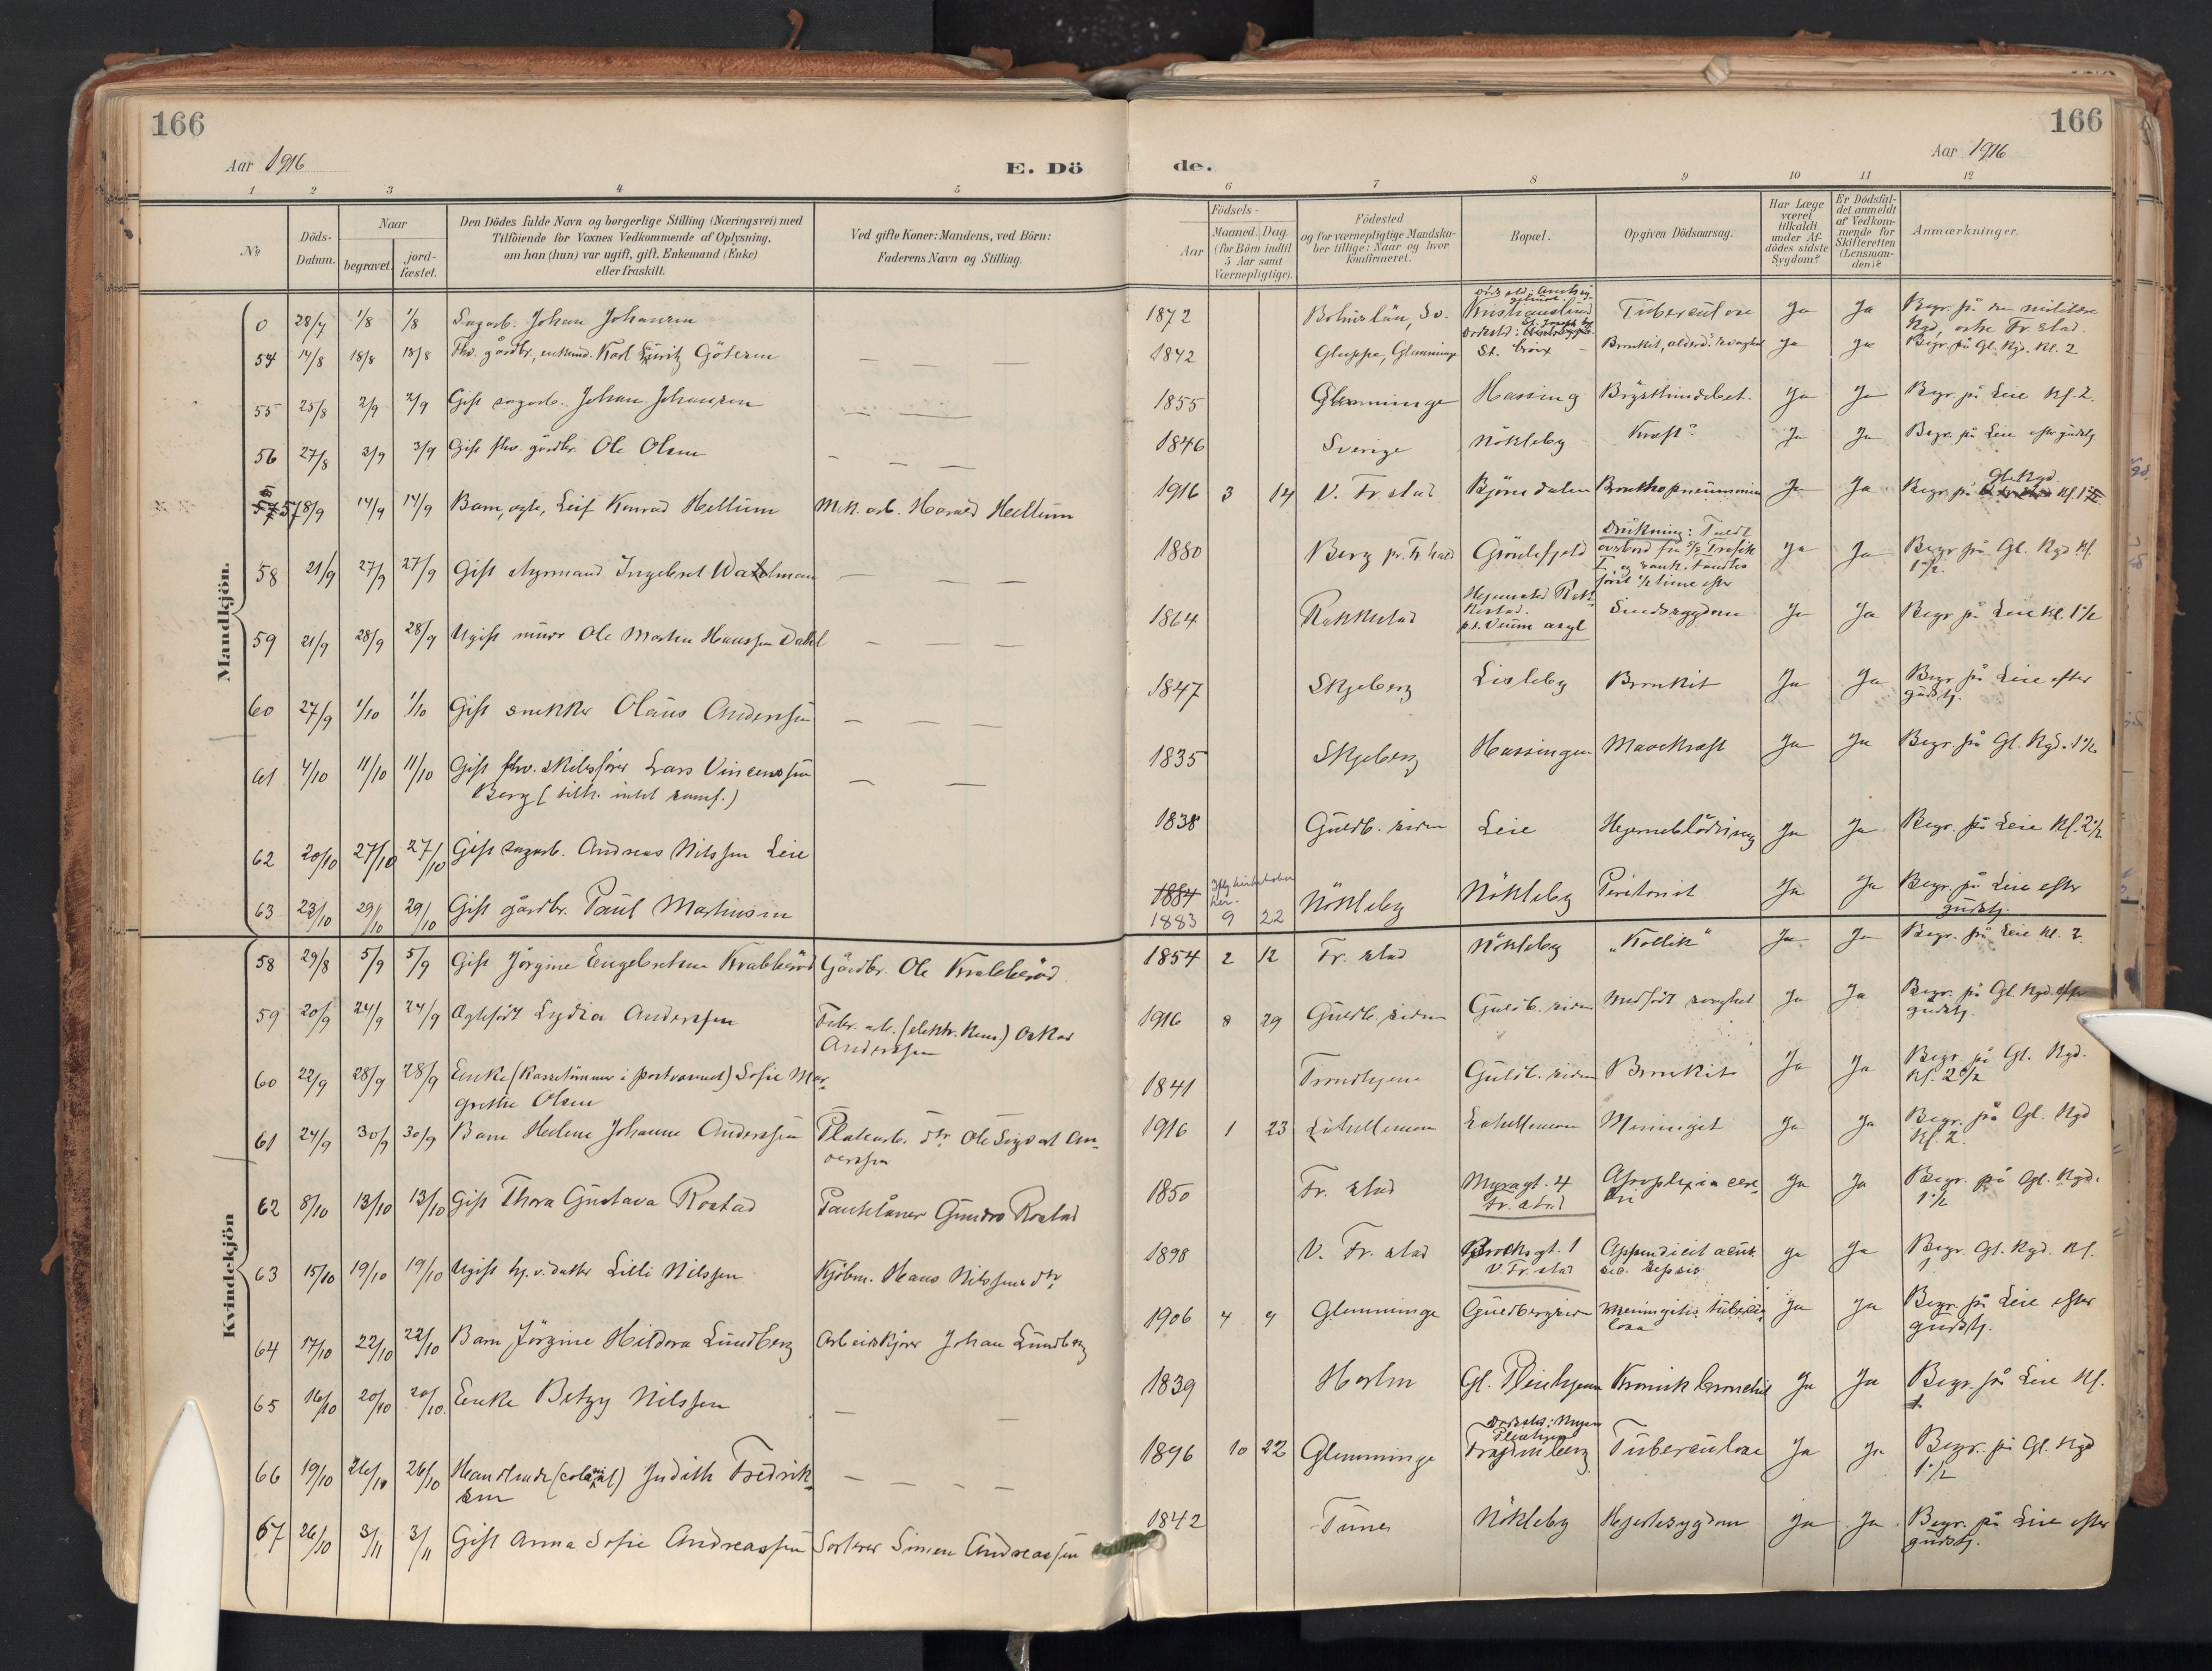 166
166
Aar 1916
E. Dö
de.
Aar 1916
1 2 3 4 5 6 7 8 9 10 11 12
No
Döds-
Datum.
Naar
begravet.
jord-
fæstet.
Den Dödes fulde Navn og borgerlige Stilling (Næringsvei) med
Tilföiende for Voxnes Vedkommende af Oplysning,
om han (hun) var ugift, gift, Enkemand (Enke)
eller fraskilt.
Ved gifte Koner: Mandens, ved Börn:
Faderens Navn og Stilling.
Födsels-
Aar
Maaned.
Dag.
(for Börn indtil
5 Aar samt
Værnepligtige).
Födested
og for værnepligtige Mandska-
ber tillige: Naar og hvor
konfirmeret.
Bopæl.
Opgiven Dödsaarsag.
Har Læge
været
tilkaldt
under Af-
dödes sidste
Sygdom?
Er Dödsfal-
det anmeldt
af Vedkom-
mende for
Skifteretten
(Lensman-
den)?
Anmærkninger.
Mandkjön.
0 28/7 1/8 1/8 Sagarb. Johan Johansen 1872 Bohuslän, Sv. Kristianslund Tuberculose Ja Ja Begr. på den militære
Kgd, östre Fr.stad.
54 14/8 18/8 18/8 Fhv. gårdbr, enkemd. Karl Göteren — — — 1842 Gluppe, Glemminge St. Croix Bronkit, alderd. svaghed Ja Ja Begr. på Gl. Kgd. Kl. 2
55 25/8 2/9 2/9 Gift sagarb. Johan Johansen — — — 1855 Glemminge Hassing Brystlindebet. Ja Ja Begr. på Leie Kl. 2.
56 27/8 3/9 3/9 Gift fhv. gårdbr. Ole Olsen — — — 1846 Sverige Nökleby Kræft? Ja Ja Begr. på Leie efter gudstj.
57 8/9 14/9 14/9 Barn, ægte, Leif Konrad Hellum Mek. arb. Harald Hellum 1916 3 14 V. Fr stad Björndalen Bronkhopneummia Ja Ja Begr. på Gl. Kgd Kl. 1 1/2
58 21/9 27/9 27/9 Gift styrmand Ingebret Wahlman — — — 1880 Berg pr. Fr.hald Grönlifjeld Drukning: Faldt
overbord fra S/S Trafik
I, og sank. Fandtes
først 1/2 time efter Ja Ja Begr på Gl. Kgd Kl.
1 1/2.
59 21/9 28/9 28/9 Ugift murer Ole Martin Hanssen Dahl — — — 1864 Rakkestad Hjemsted Rak-
kestad.
p.t. Veum asyl Sindssygdom Ja Ja Begr på Leie Kl. 1 1/2
60 27/9 1/10 1/10 Gift snekker Olaus Anderssen — — — 1847 Skjeberg Lisleby Bronkit Ja Ja Begr på Leie efter
gudstj.
61 4/10 11/10 11/10 Gift fhv. skibsfører Lars Vincenssen
Berg (tilh. intet samf.) — — — 1835 Skjeberg Hassingen Mavekræft Ja Ja Begr på Gl. Kgd. 1 1/2
62 20/10 27/10 27/10 Gift sagarb. Andreas Nilssen Leie 1838 Guldb. siden Leie Hjerneblödning Ja Ja Begr. på Leie Kl. 2 1/2
63 23/10 29/10 29/10 Gift gårdbr. Paul Martinsen 1884
1883 9 22 Nökleby Nökleby Peritonit Ja Ja Begr. på Leie efter
gudstj.
Kvindekjön
58 29/8 5/9 5/9 Gift Jörgine Engebretsen Krabberöd Gårdbr. Ole Krabberöd. 1854 2 12 Fr. stad Nökleby „Kollik“ Ja Ja Begr. på Leie Kl. 2
59 20/9 24/9 24/9 Ægtefödt Lydia Anderssen Fabr. arb. (elektr. Kem.) Oskar
Anderssen 1916 8 29 Guldb. siden Guldb. siden Medfödt svaghed Ja Ja Begr. på Gl. Kgd. efter
gudstj.
60 22/9 28/9 28/9 Enke (Kassetömmer i postvæsenet) Sofie Mar-
grethe Olsen 1841 Trondhjem Guldb. siden Bronkit Ja Ja Begr. på Gl. Kgd.
Kl. 2 1/2
61 24/9 30/9 30/9 Barn Helene Johanne Anderssen Platearb. dtr Ole Sigvart An-
derssen 1916 1 23 Meningit Ja Ja Begr. på Gl. Kgd
Kl. 2.
62 8/10 13/10 13/10 Gift Thora Gustava Rostad Pantelåner Gunder Rostad 1850 Fr. stad Myragt. 4
Fr. stad Apoplexia cere-
bri Ja Ja Begr. på Gl. Kgd.
1 1/2
63 15/10 19/10 19/10 Ugift hj. v. datter Lilli Nilssen Kjöbm. Hans Nilssens dtr 1898 V. Fr. stad Brochsgt. 1
V. Fr. stad Appendicit acut.
sec. Sepsis Ja Ja Begr. Gl. Kgd. Kl.
1
64 17/10 22/10 22/10 Barn Jörgine Hildora Lundberg Arbeidskjörer Johan Lundberg 1906 4 9 Glemminge Guldbergsiden Meningitis tubercu-
losa Ja Ja Begr. på Leie efter
gudstj.
65 16/10 20/10 20/10. Enke Betzy Nilssen — — 1839 Horten Gl. Pleiehjem Kronisk bronchit Ja Ja Begr. på Leie Kl.
1.
66 19/10 26/10 26/10 Handlende (colonial) Judith Fredrik-
sen — — — — 1896 10 22 Glemminge Dödssted: Myren
Pleiehjem
Trosvikberg Tuberculose Ja Ja Begr. på Gl. Kgd
1 1/2
67 26/10 3/11 3/11 Gift Anna Sofie Andreassen Sorterer Simen Andreassen 1842 Tune Nökleby Hjertesygdom Ja Ja Begr. på Leie efter
gudstj.